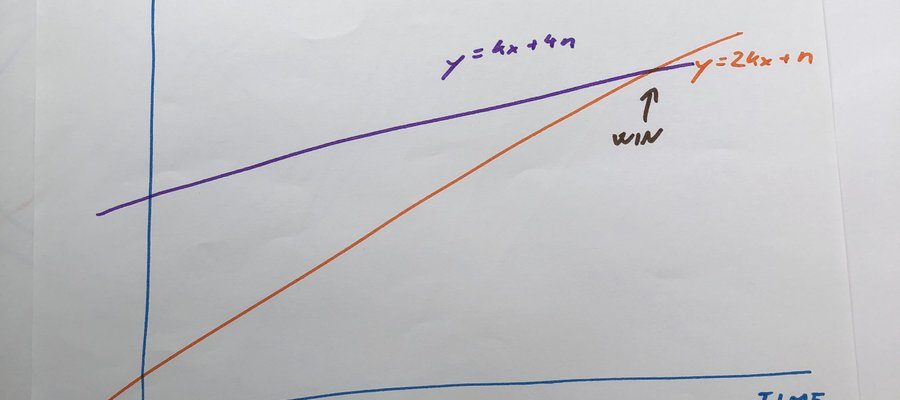 y = kx + 4n
y = 2kx + n
WIN
TIME